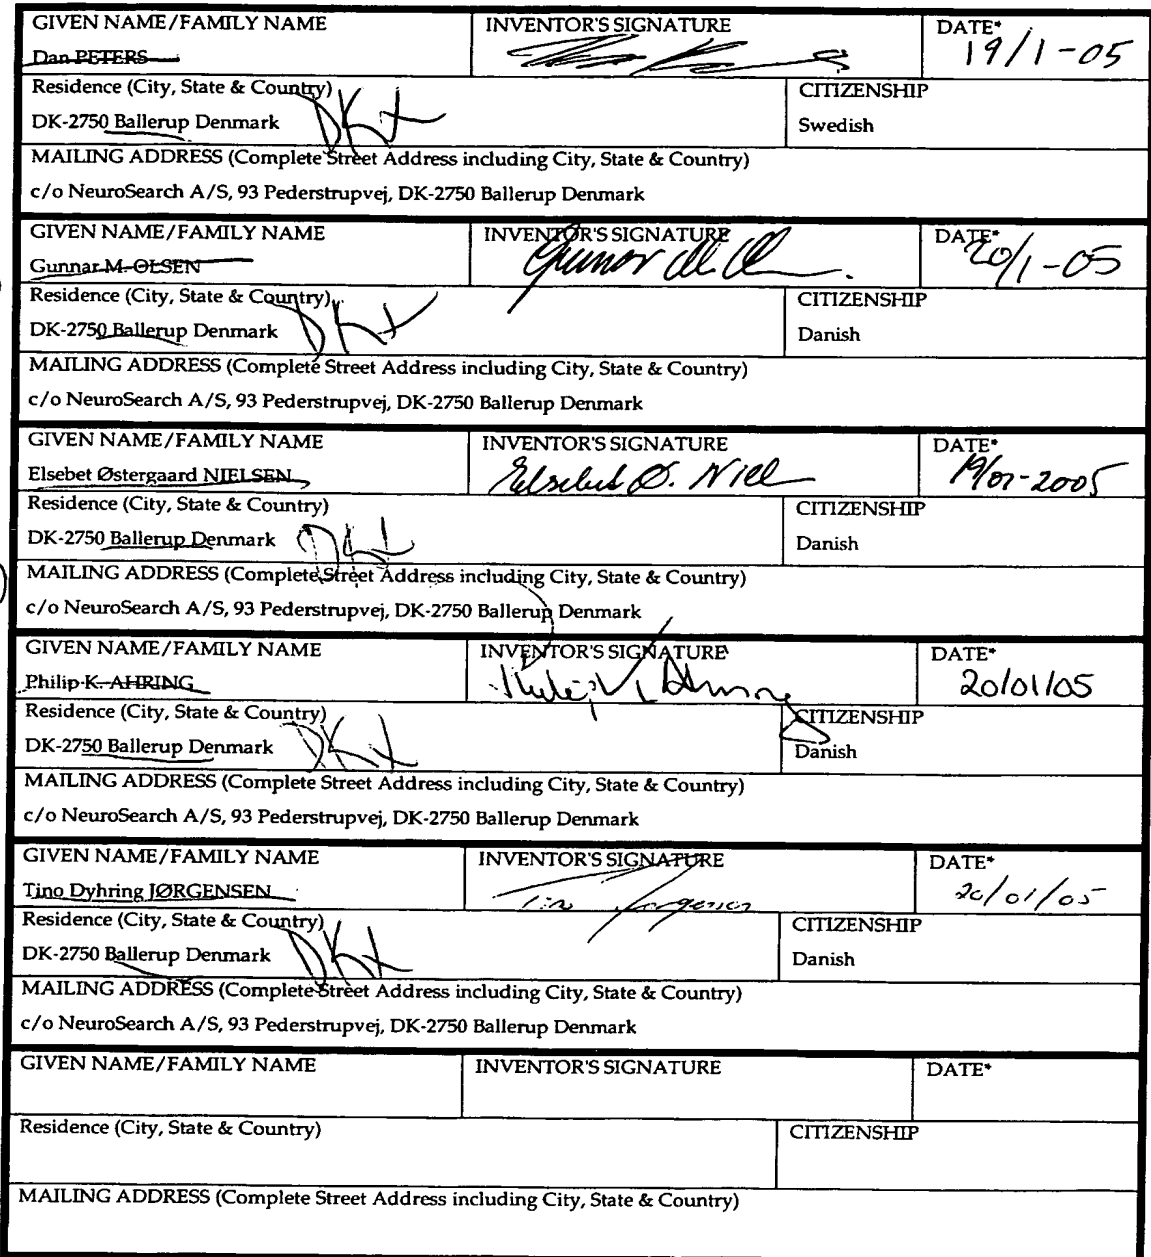 GIVEN NAME/FAMILY NAME INVENTOR'S SIGNATURE DATE*
Dan PETERS 19/1-05
Residence (City, State & Country) CITIZENSHIP
DK-2750 Ballerup Denmark DKX Swedish
MAILING ADDRESS (Complete Street Address including City, State & Country)
c/o NeuroSearch A/S, 93 Pederstrupvej, DK-2750 Ballerup Denmark
GIVEN NAME/FAMILY NAME INVENTOR'S SIGNATURE DATE*
Gunnar M. OLSEN Gunnar 20/1-05
Residence (City, State & Country) CITIZENSHIP
DK-2750 Ballerup Denmark DKX Danish
MAILING ADDRESS (Complete Street Address including City, State & Country)
c/o NeuroSearch A/S, 93 Pederstrupvej, DK-2750 Ballerup Denmark
GIVEN NAME/FAMILY NAME INVENTOR'S SIGNATURE DATE*
Elsebet Østergaard NIELSEN Elsebet Ø. 19/01-2005
Residence (City, State & Country) CITIZENSHIP
DK-2750 Ballerup Denmark DKX Danish
MAILING ADDRESS (Complete Street Address including City, State & Country)
c/o NeuroSearch A/S, 93 Pederstrupvej, DK-2750 Ballerup Denmark
GIVEN NAME/FAMILY NAME INVENTOR'S SIGNATURE DATE*
Philip K. AHRING Philip K. Ahring 20/01/05
Residence (City, State & Country) CITIZENSHIP
DK-2750 Ballerup Denmark DKX Danish
MAILING ADDRESS (Complete Street Address including City, State & Country)
c/o NeuroSearch A/S, 93 Pederstrupvej, DK-2750 Ballerup Denmark
GIVEN NAME/FAMILY NAME INVENTOR'S SIGNATURE DATE*
Tino Dyhring JØRGENSEN Tino Jørgensen 20/01/05
Residence (City, State & Country) CITIZENSHIP
DK-2750 Ballerup Denmark DKX Danish
MAILING ADDRESS (Complete Street Address including City, State & Country)
c/o NeuroSearch A/S, 93 Pederstrupvej, DK-2750 Ballerup Denmark
GIVEN NAME/FAMILY NAME INVENTOR'S SIGNATURE DATE*
Residence (City, State & Country) CITIZENSHIP
MAILING ADDRESS (Complete Street Address including City, State & Country)